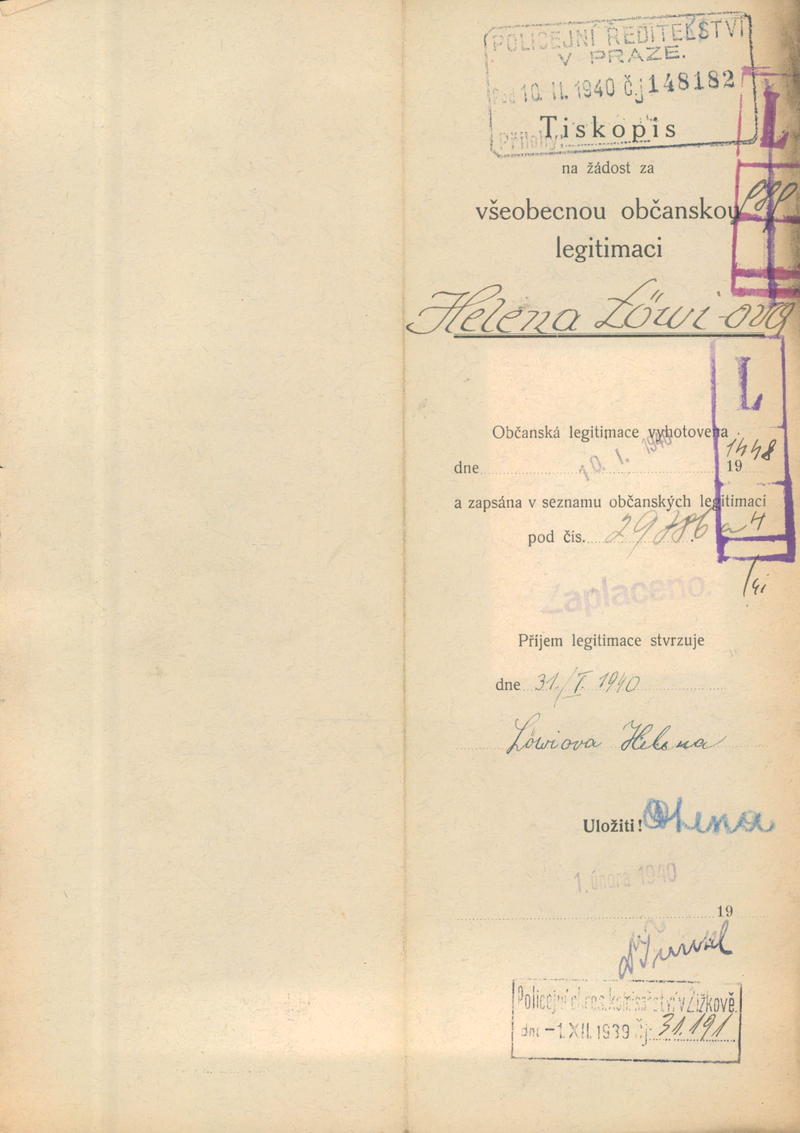 POLICEJNÍ ŘEDITELSTVÍ
V PRAZE.
10. II. 1940 č.j 148182
Přílohy
Tiskopis
na žádost za
L
všeobecnou občanskou
legitimaci
Helena Löwi-ová
L
Občanská legitimace vyhotovena
10. I. 1940
dne 19
1448
a zapsána v seznamu občanských legitimací
pod čís. 29786 a 4
Zaplaceno.
Příjem legitimace stvrzuje
dne 31./I. 1940
Löwiova Helena
Uložiti!
1. února 1940
19
Policejní okres. komisařství v Žižkově.
dne -1. XII. 1939 čj. 31.191